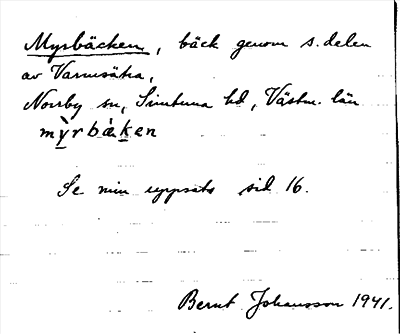 Myrbäcken, bäck genom s. delen
av Varmsätra,
Norrby sn, Simtuna hd, Västm. län
mỳrbáken
Se min uppsats sid 16.
Bernt Johansson 1941.